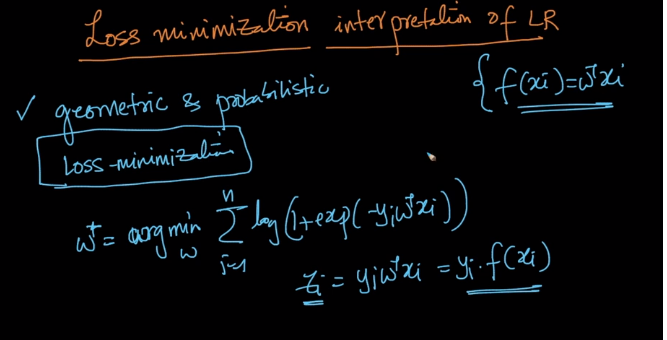 Loss minimization interpretation of LR
✓ geometric & probabilistic
{ f(xi) = wᵀxi
Loss-minimization
w* = argmin_w Σ_{i=1}^{n} log(1+exp(-yi wᵀxi))
zi = yi wᵀxi = yi · f(xi)